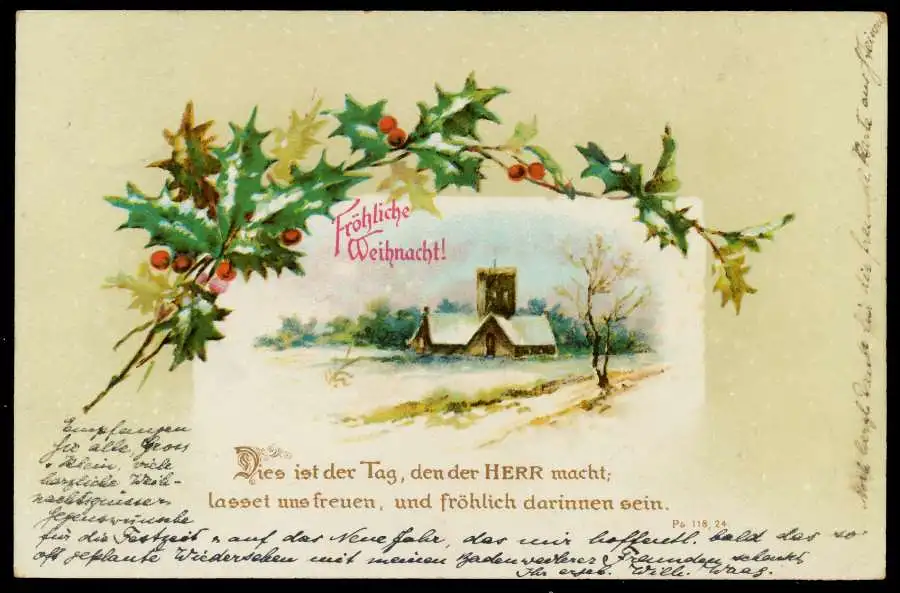 Fröhliche
Weihnacht!
Dies ist der Tag, den der HERR macht;
lasset uns freuen, und fröhlich darinnen sein.
Ps 118, 24
Empfangen
Sie alle, Gross
u. Klein, viele
herzliche Weih-
nachtsgrüsse u.
Segenswünsche
für die Festzeit u. auf das Neue Jahr, das mir hoffentl. bald das so
oft geplante Wiedersehen mit meinen Badenweilerer Freunden schenkt
Ihr ergeb. Willi. Waag.
Noch herzl. Dank für die Karte aus